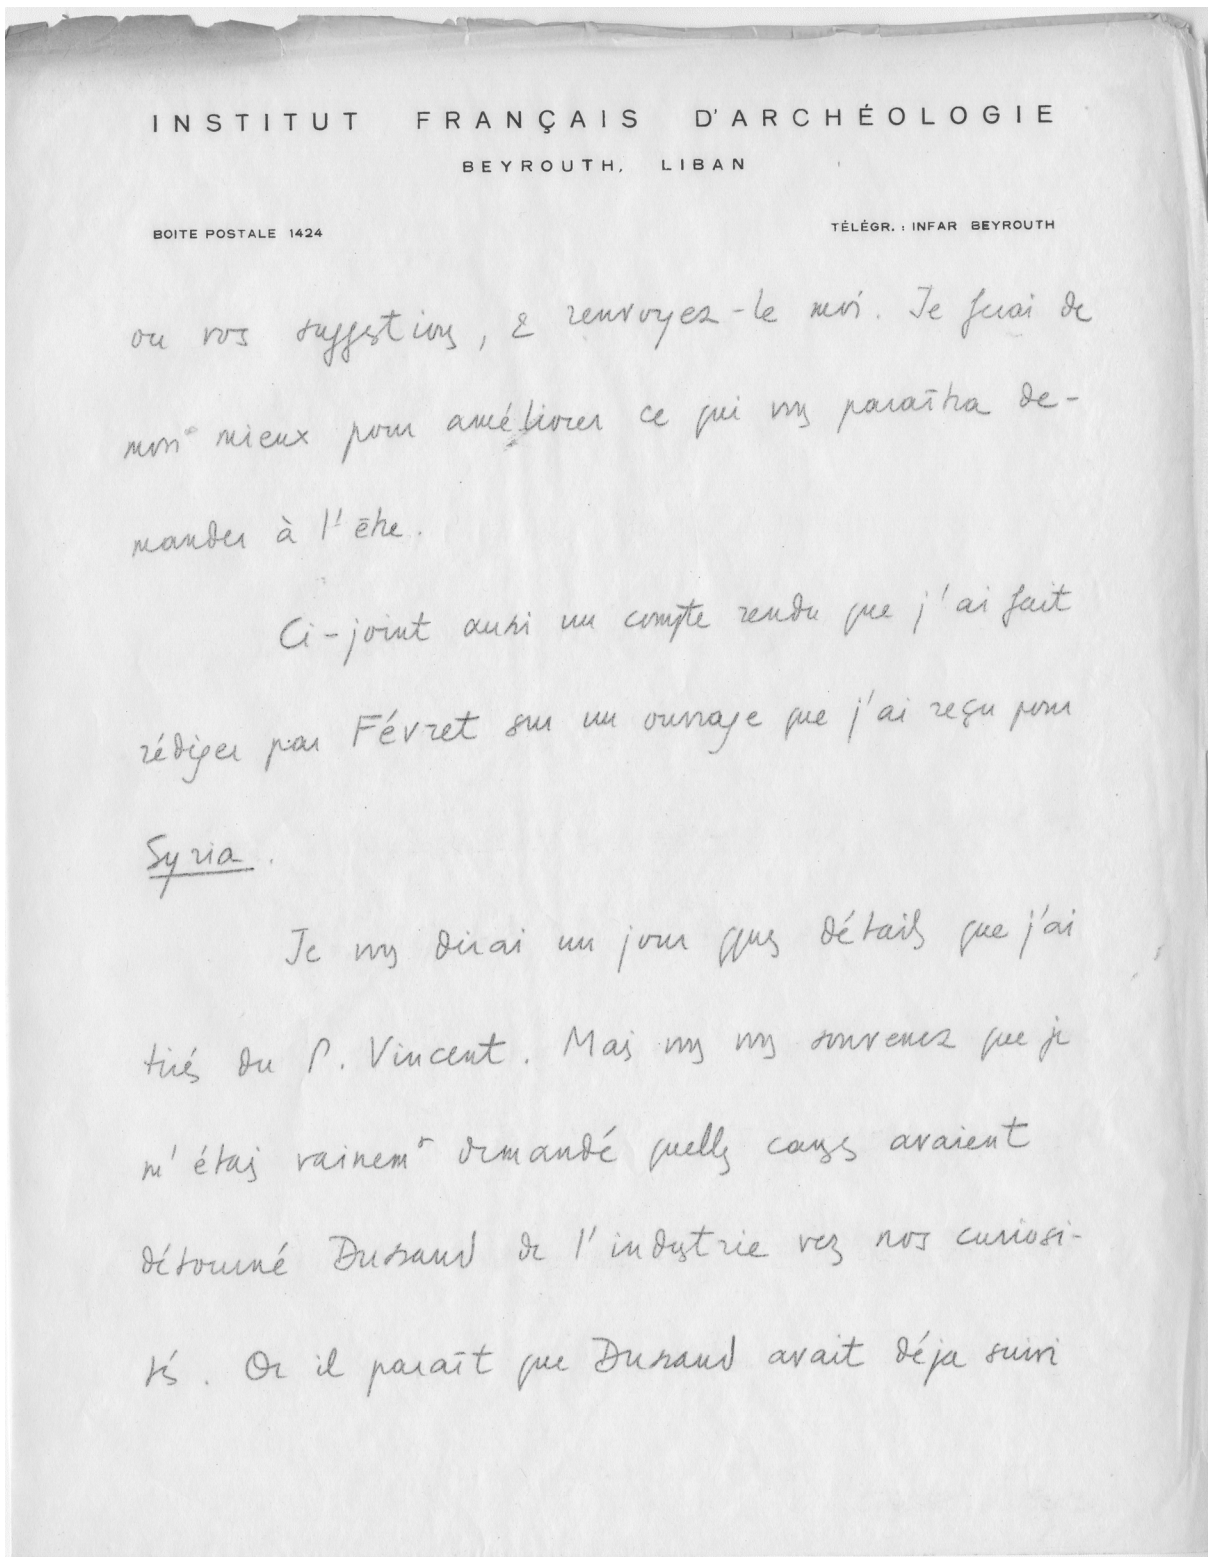 INSTITUT FRANÇAIS D'ARCHÉOLOGIE
BEYROUTH, LIBAN
BOITE POSTALE 1424
TÉLÉGR. : INFAR BEYROUTH
ou vos suggestions, & renvoyez-le moi. Je ferai de
mon mieux pour améliorer ce qui vs paraîtra de-
mander à l'être.
Ci-joint aussi un compte rendu que j'ai fait
rédiger par Févret sur un ouvrage que j'ai reçu pour
Syria.
Je vs dirai un jour qques détails que j'ai
tirés du P. Vincent. Mais vs vs souvenez que je
m'étais vainemt demandé quelles causes avaient
détourné Dussaud de l'industrie vers nos curiosi-
tés. Or il paraît que Dussaud avait déja suivi